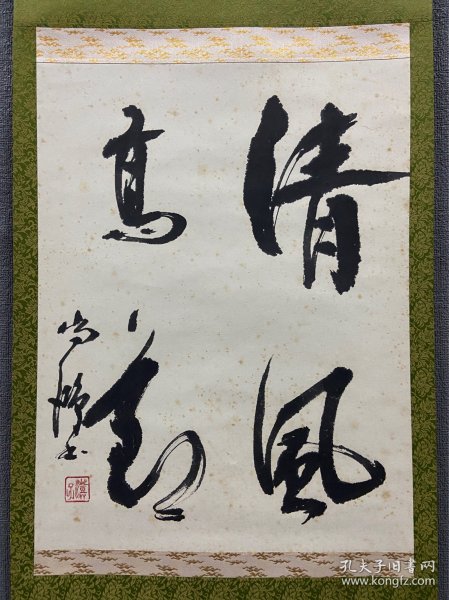 清風
高節
尚 書
孔夫子旧书网
www.kongfz.com